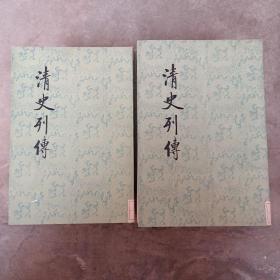 清史列傳
清史列傳